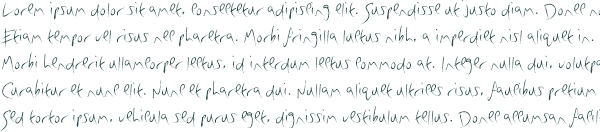 Lorem ipsum dolor sit amet, consectetur adipiscing elit. Suspendisse ut justo diam. Donec n
Etiam tempor vel risus nec pharetra. Morbi fringilla luctus nibh, a imperdiet nisl aliquet in.
Morbi hendrerit ullamcorper lectus, id interdum lectus commodo at. Integer nulla dui, volutpa
Curabitur et nunc elit. Nunc et pharetra dui. Nullam aliquet ultrices risus, faucibus pretium
Sed tortor ipsum, vehicula sed purus eget, dignissim vestibulum tellus. Donec accumsan facili